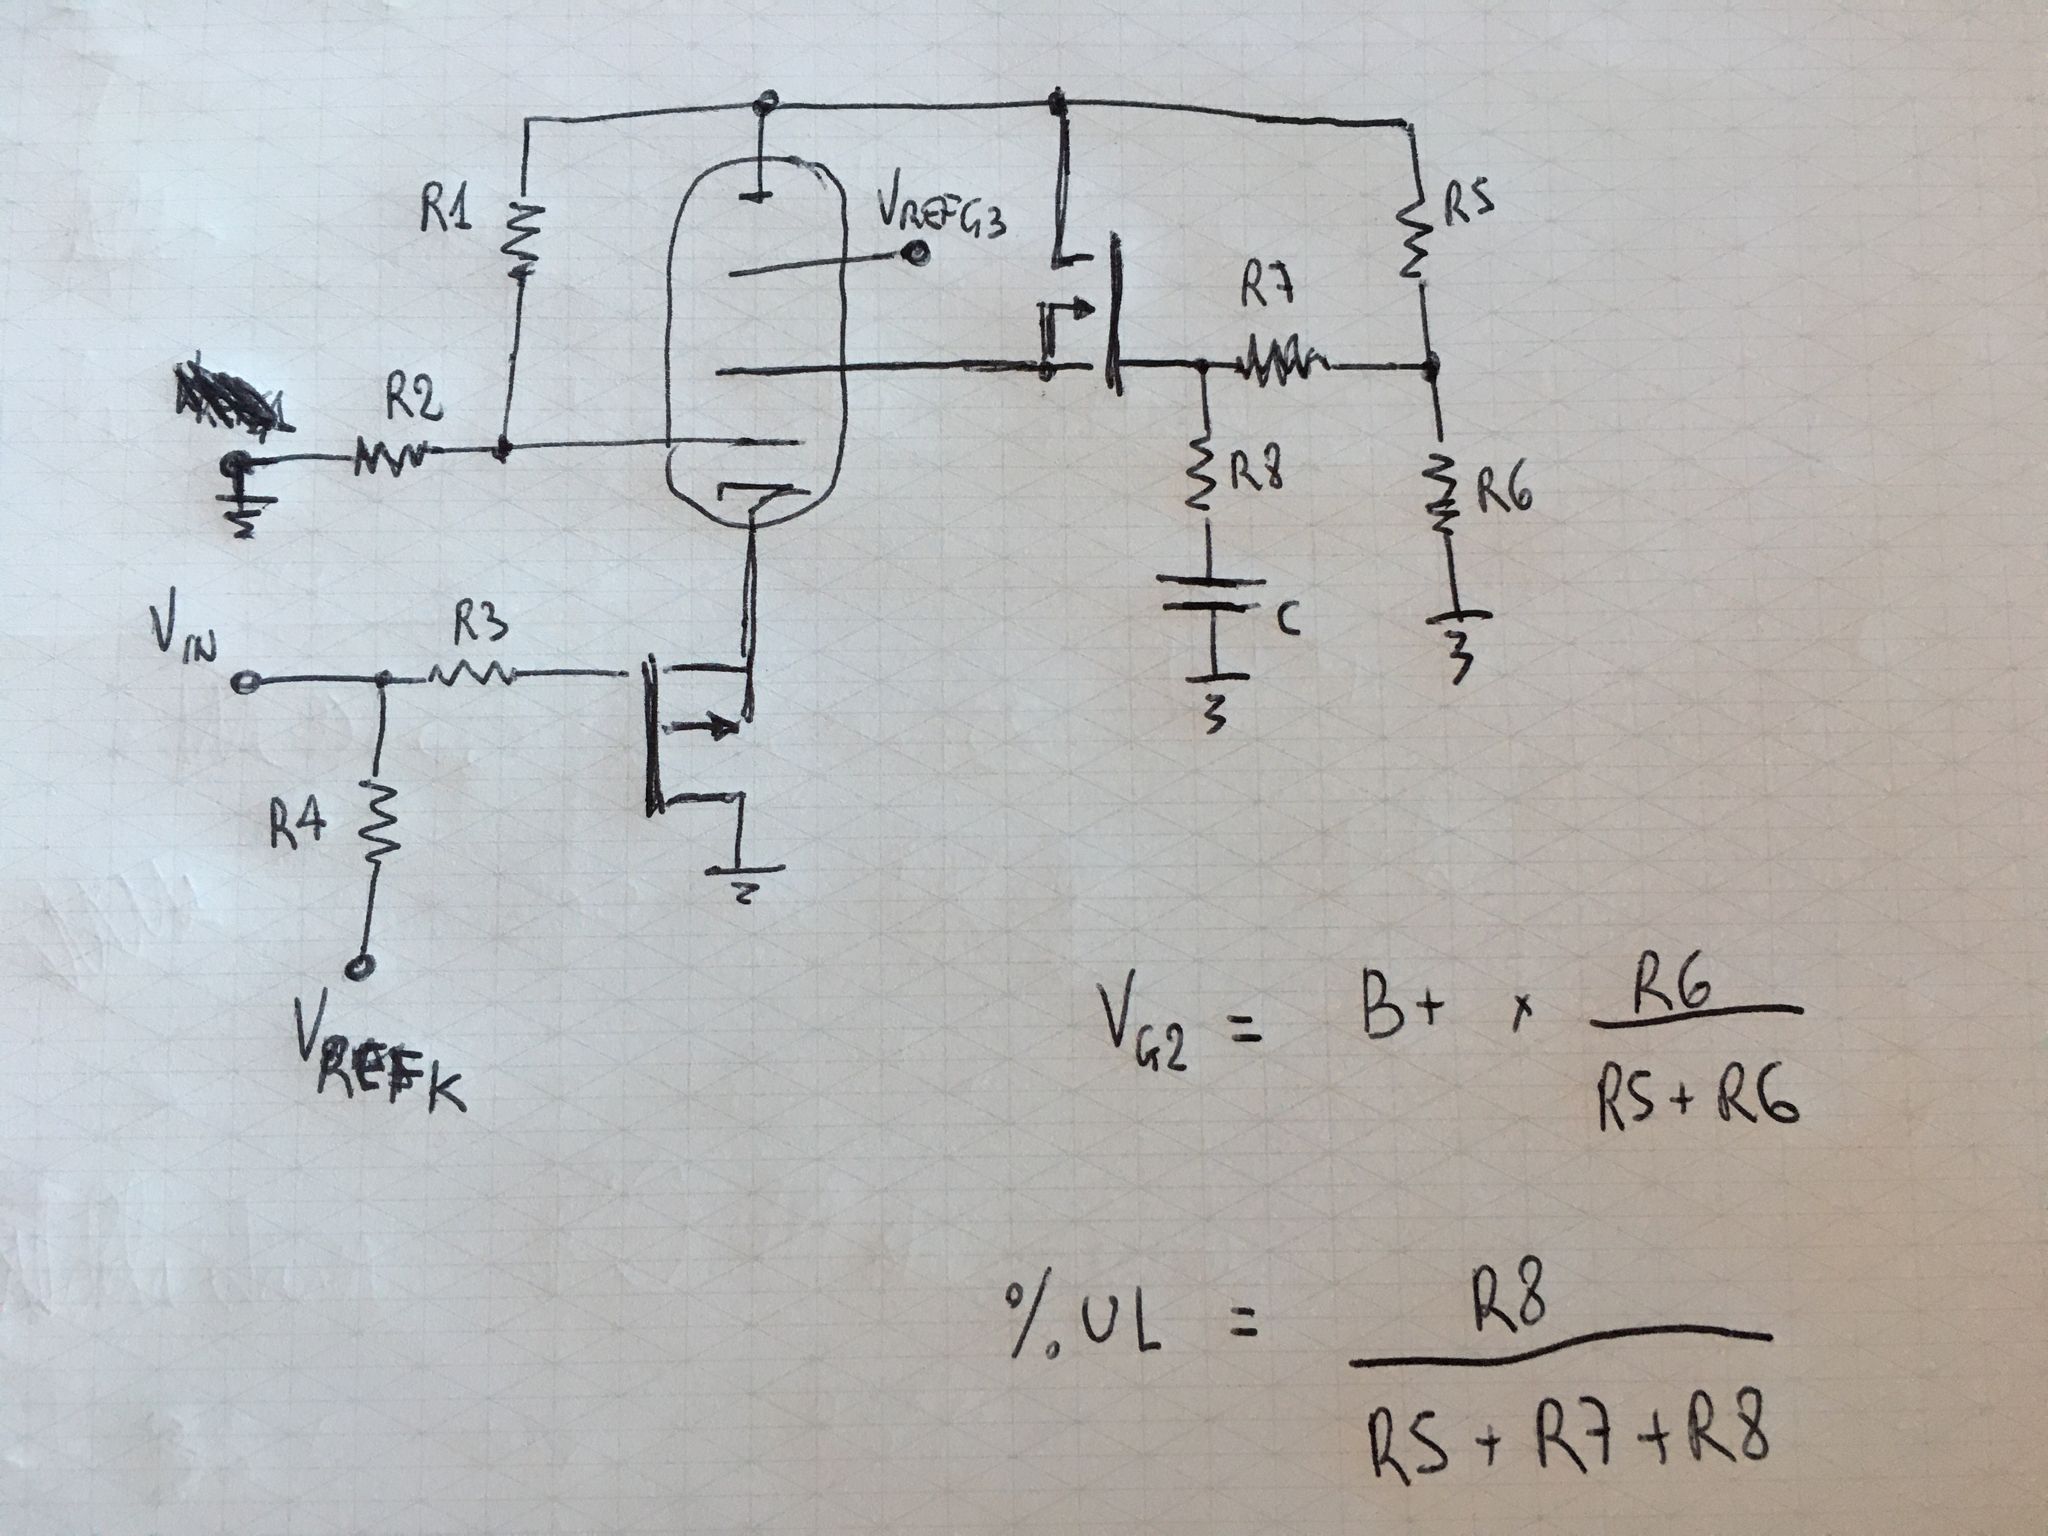 R1
VREFG3
R5
R7
R2
R8
R6
VIN
R3
C
R4
VREFK
VG2 = B+ x R6
R5 + R6
% UL = R8
R5 + R7 + R8